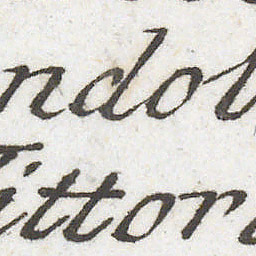 ndol
Vittori